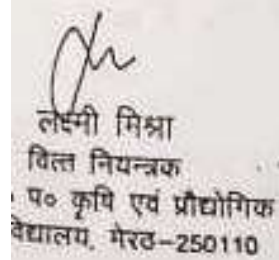 लक्ष्मी मिश्रा
वित्त नियन्त्रक
प० कृषि एवं प्रौद्योगिक
विद्यालय, मेरठ–250110